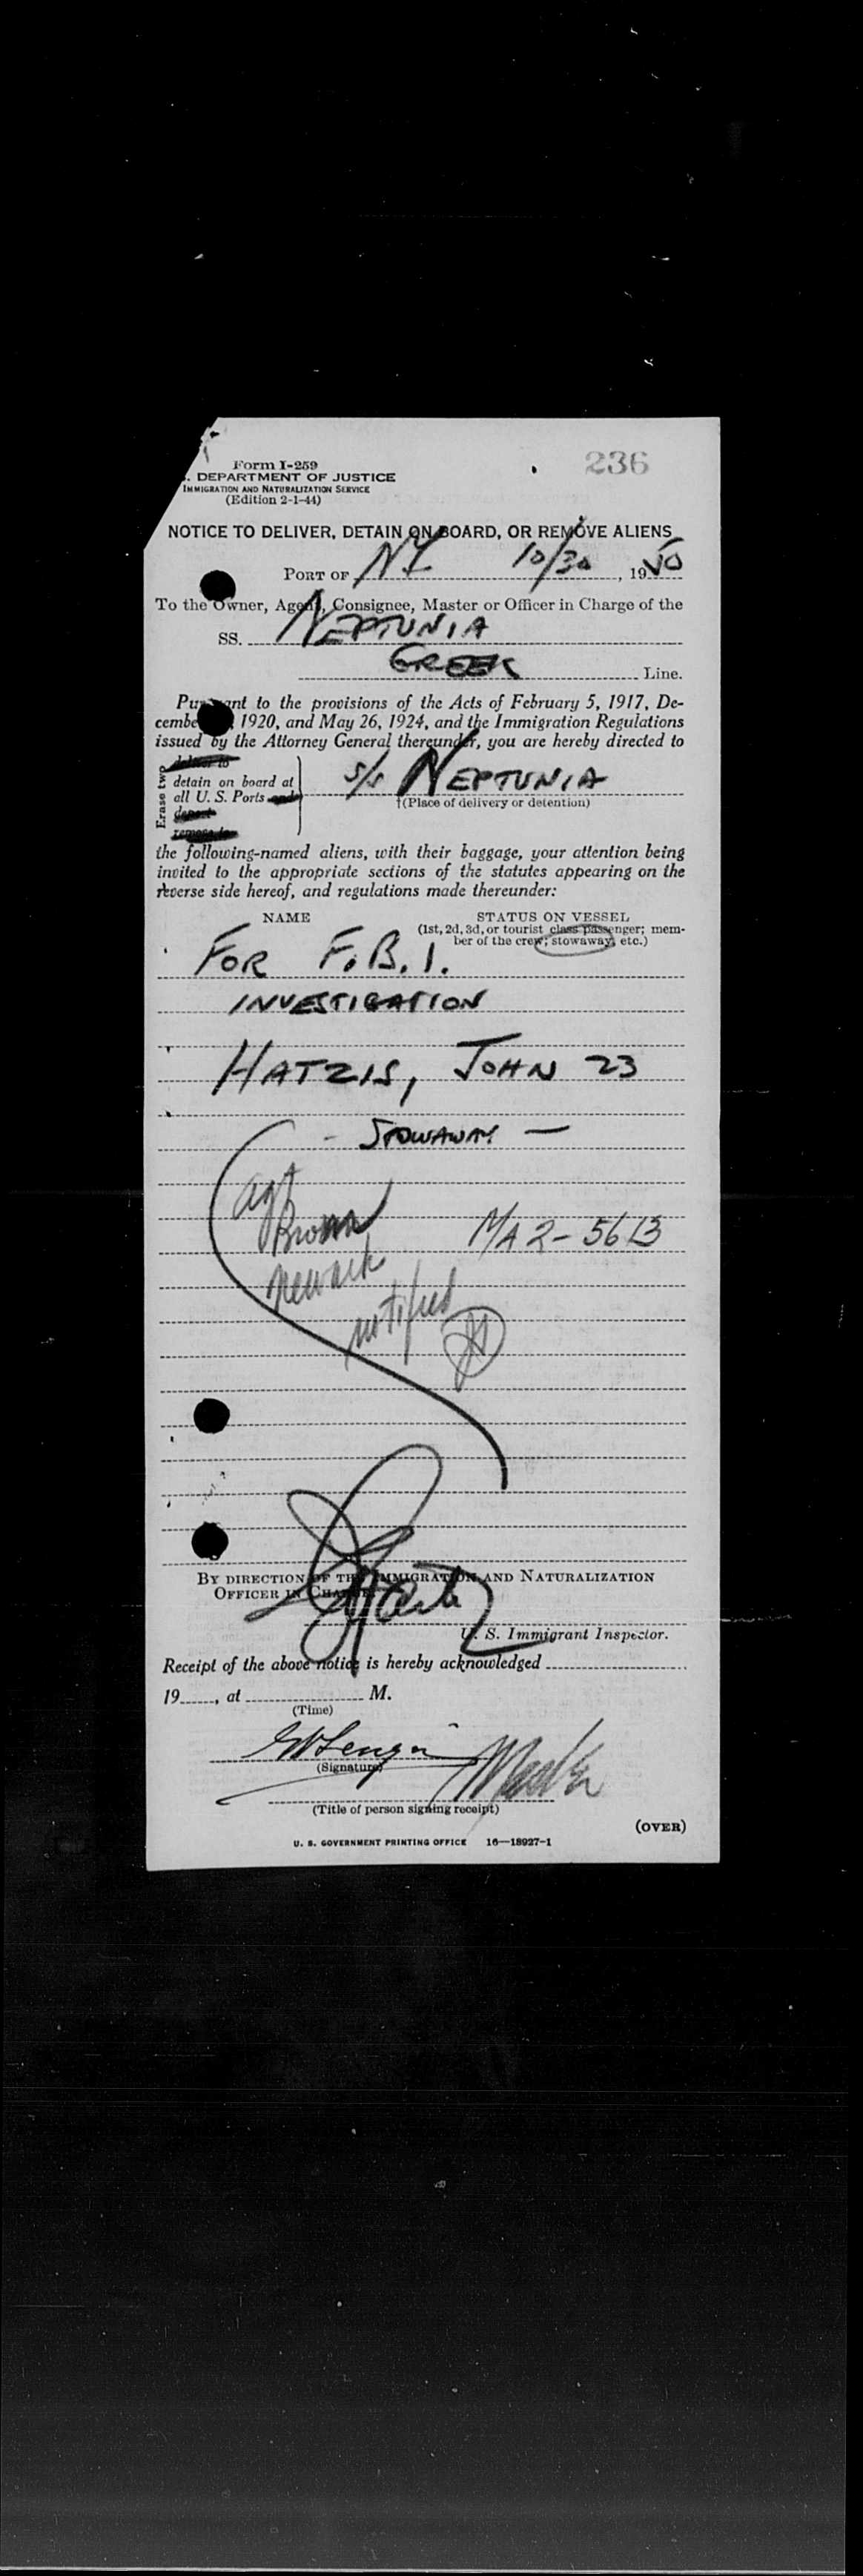 236
Form I-259
. DEPARTMENT OF JUSTICE
IMMIGRATION AND NATURALIZATION SERVICE
(Edition 2-1-44)
NOTICE TO DELIVER, DETAIN ON BOARD, OR REMOVE ALIENS
PORT OF NY 10/30, 1950
To the Owner, Agent, Consignee, Master or Officer in Charge of the
SS. NEPTUNIA
GREEK Line.
Pursuant to the provisions of the Acts of February 5, 1917, De-
cembe 1920, and May 26, 1924, and the Immigration Regulations
issued by the Attorney General thereunder, you are hereby directed to
Erase two
deliver to
detain on board at
all U. S. Ports and
depart
remove to
S/S NEPTUNIA
†(Place of delivery or detention)
the following-named aliens, with their baggage, your attention being
invited to the appropriate sections of the statutes appearing on the
reverse side hereof, and regulations made thereunder:
NAME STATUS ON VESSEL
(1st, 2d, 3d, or tourist class passenger; mem-
ber of the crew; stowaway, etc.)
FOR F.B.I.
INVESTIGATION
HATZIS, JOHN 23
- STOWAWAY -
agt
Brown
MA 2-5613
Newark
notified
BY DIRECTION OF THE IMMIGRATION AND NATURALIZATION
OFFICER IN CHARGE
U. S. Immigrant Inspector.
Receipt of the above notice is hereby acknowledged
19, at M.
(Time)
(Signature)
Master
(Title of person signing receipt)
(OVER)
U. S. GOVERNMENT PRINTING OFFICE 16—18927-1